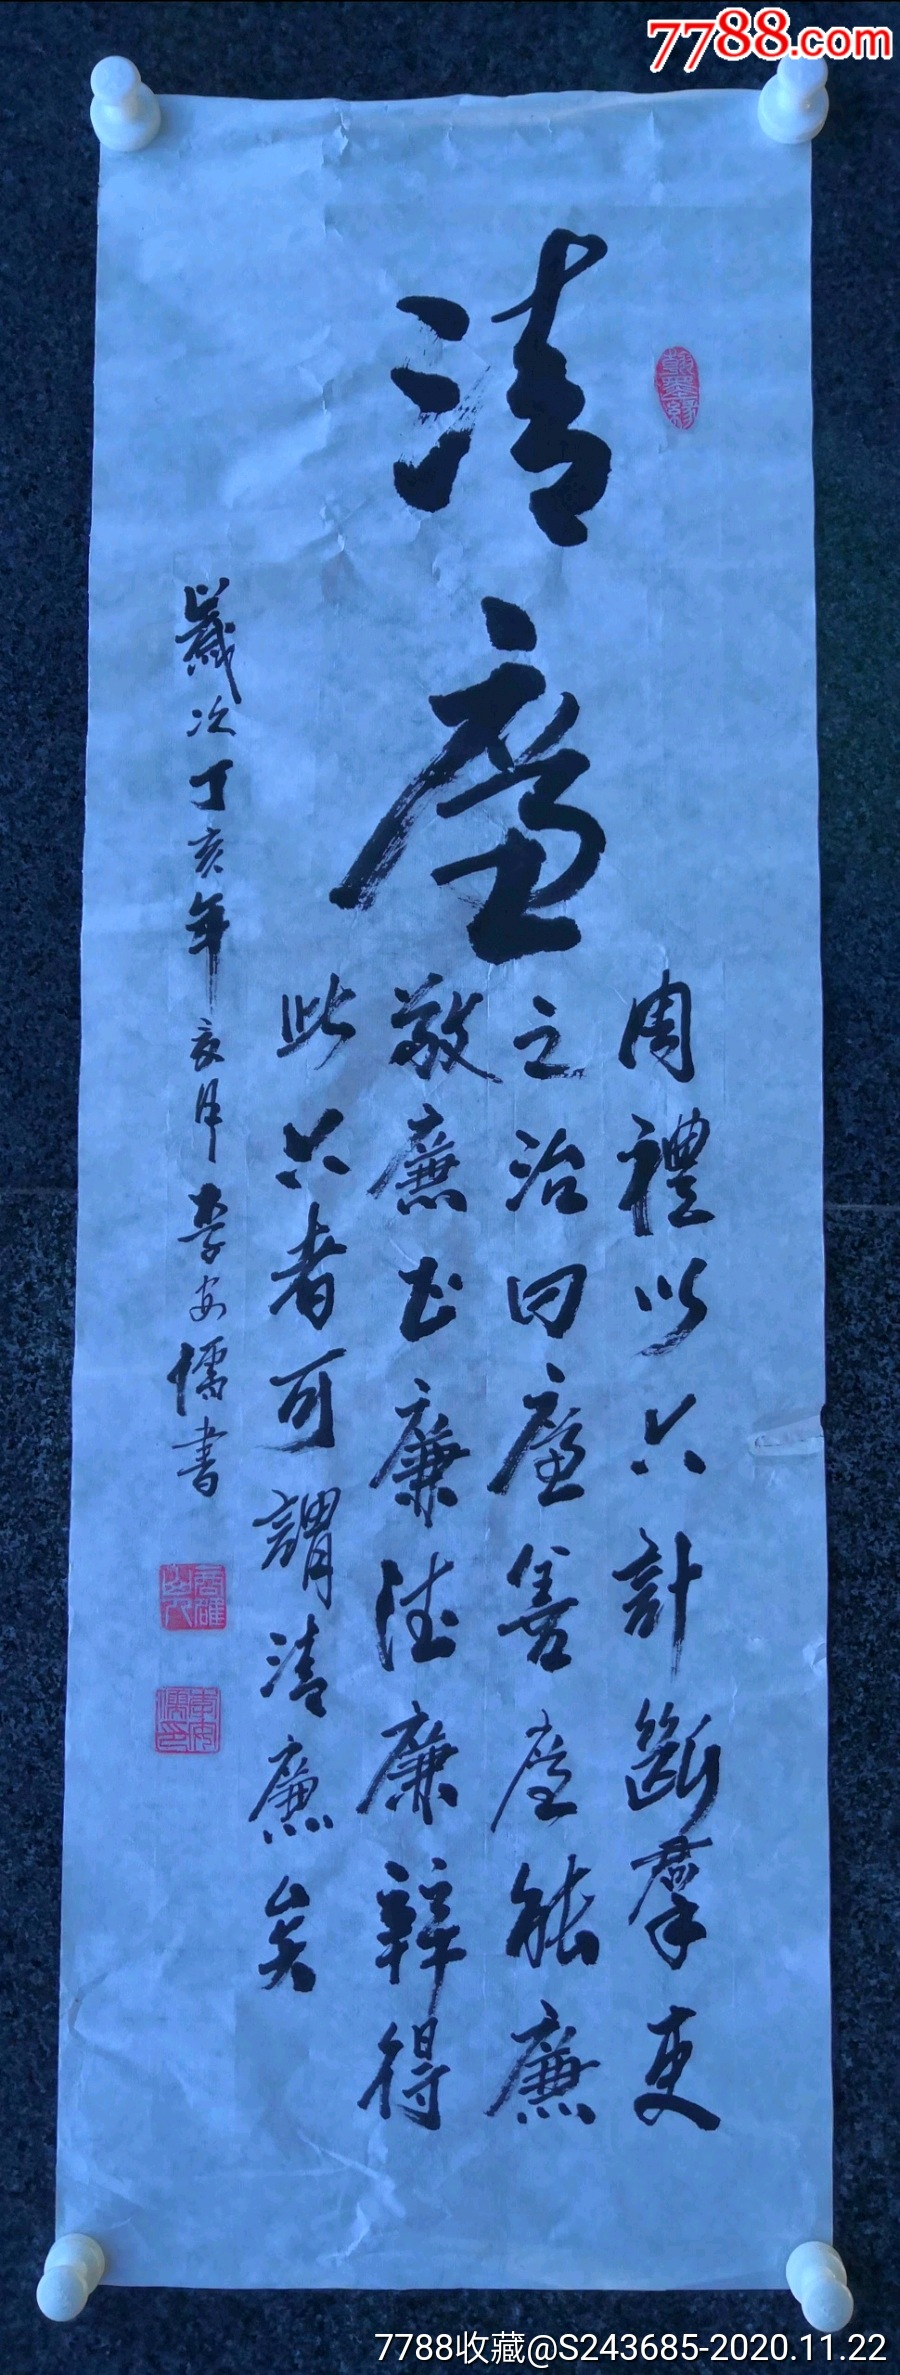 7788.com
清廉
翰墨緣
周禮以六計斷羣吏
之治曰廉善廉能廉
敬廉正廉法廉辨得
此六者可謂清廉矣
歲次丁亥年亥月李安儒書
李安儒印
7788收藏@S243685-2020.11.22